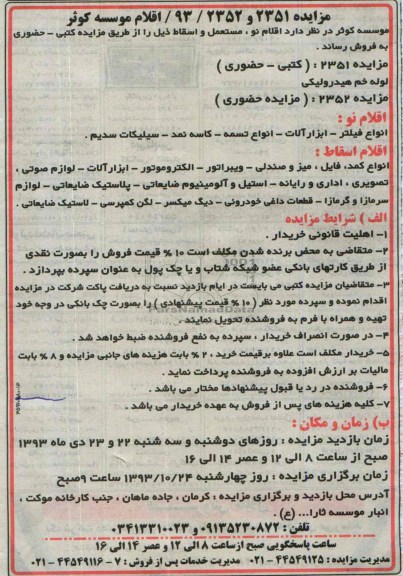 مزایده ۲۳۵۱ و ۲۳۵۲ / ۹۳/ اقلام موسسه کوثر
موسسه کوثر در نظر دارد اقلام نو ، مستعمل و اسقاط ذیل را از طریق مزایده کتبی - حضوری
به فروش رساند .
مزایده ۲۳۵۱ : ( کتبی - حضوری )
لوله خم هیدرولیکی
مزایده ۲۳۵۲ : ( مزایده حضوری )
اقلام نو :
انواع فیلتر - ابزارآلات - انواع تسمه - کاسه نمد - سیلیکات سدیم .
اقلام اسقاط :
انواع کمد، فایل ، میز و صندلی - ویبراتور - الکتروموتور - ابزارآلات - لوازم صوتی ،
تصویری ، اداری و رایانه - استیل و آلومینیوم ضایعاتی - پلاستیک ضایعاتی - لوازم
سرمازا و گرمازا - قطعات داغی خودرونی - دیگ میکسر - لگن کمپرسی - لاستیک ضایعاتی .
الف ) شرایط مزایده
۱- اهلیت قانونی خریدار .
۲- متقاضی به محض برنده شدن مکلف است ۱۰ % قیمت فروش را بصورت نقدی
از طریق کارتهای بانکی عضو شبکه شتاب و یا چک پول به عنوان سپرده بپردازد .
۳- متقاضیان مزایده کتبی می بایست در ایام بازدید نسبت به دریافت پاکت شرکت در مزایده
اقدام نموده و سپرده مورد نظر ( ۱۰ % قیمت پیشنهادی ) را بصورت چک بانکی در وجه خود
تهیه و همراه با فرم به فروشنده تحویل نمایند .
ParsNamadData
۴- در صورت انصراف خریدار ، سپرده به نفع فروشنده ضبط خواهد شد .
۵- خریدار مکلف است علاوه برقیمت خرید ، ۲ % بابت هزینه های جانبی مزایده و ۸ % بابت
مالیات بر ارزش افزوده به فروشنده پرداخت نماید .
۶- فروشنده در رد یا قبول پیشنهادها مختار می باشد .
۷- کلیه هزینه های پس از فروش به عهده خریدار می باشد .
ب) زمان و مکان :
زمان بازدید مزایده : روزهای دوشنبه و سه شنبه ۲۲ و ۲۳ دی ماه ۱۳۹۳
صبح از ساعت ۸ الی ۱۲ و عصر ۱۴ الی ۱۶
زمان برگزاری مزایده : روز چهارشنبه ۱۳۹۳/۱۰/۲۴ ساعت ۹صبح
آدرس محل بازدید و برگزاری مزایده : کرمان ، جاده ماهان ، جنب کارخانه موکت ،
انبار موسسه ثارا... (ع) .
تلفن : ۰۹۱۳۵۲۳۰۸۷۲ و ۰۳۴۱۳۳۱۰۰۲۳
ساعت پاسخگویی صبح ازساعت ۸ الی ۱۲ و عصر ۱۴ الی ۱۶
مدیریت مزایده : ۴۴۵۴۹۱۲۵ - ۰۲۱ مدیریت خدمات پس از فروش : ۷ - ۴۴۵۴۹۱۱۶ - ۰۲۱